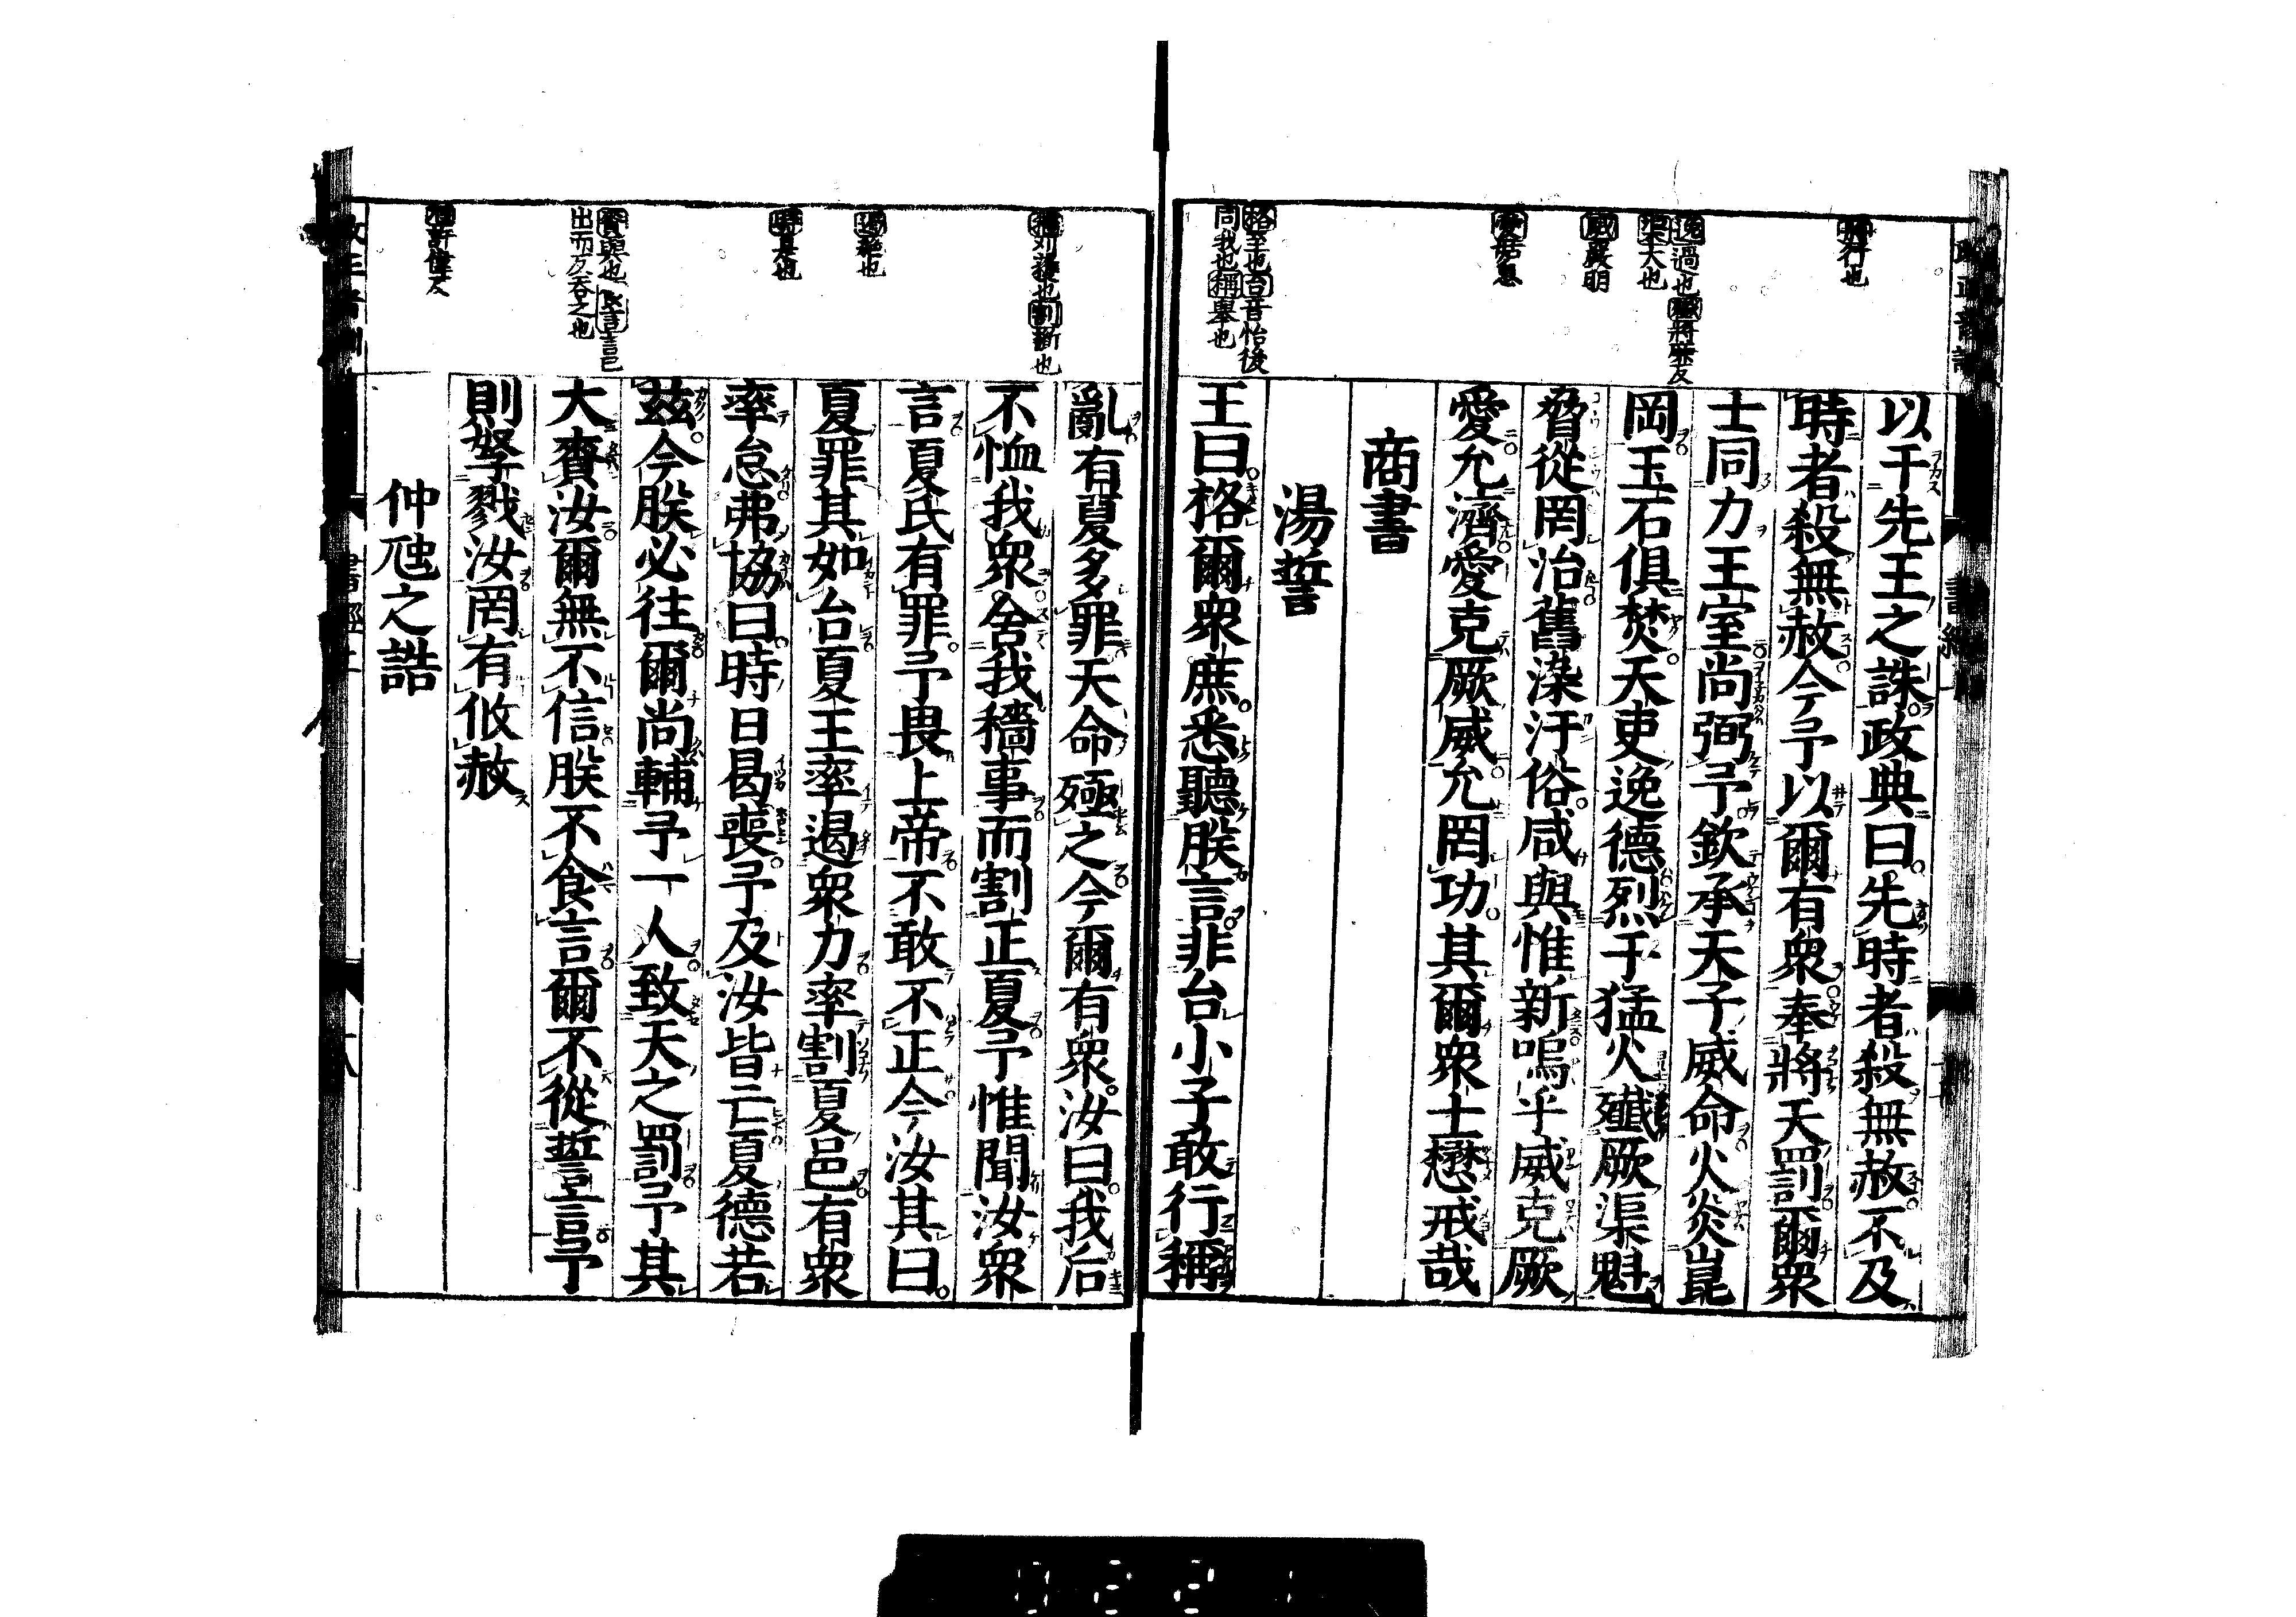 將行也
逸過也殲將廉反
渠大也
威嚴明
愛姑息
格至也台音怡後
同我也稱舉也
以干先王之誅政典曰先時者殺無赦不及
時者殺無赦今予以爾有衆奉將天罰爾衆
士同力王室尚弼予欽承天子威命火炎崑
岡玉石俱焚天吏逸德烈于猛火殲厥渠魁
脅從罔治舊染汙俗咸與惟新嗚乎威克厥
愛允濟愛克厥威允罔功其爾衆士懋戒哉
商書
湯誓
王曰格爾衆庶悉聽朕言非台小子敢行稱
穡刈穫也割斷也
遏絶也
時是也
賚與也食言言已
出而反吞之也
亂有夏多罪天命殛之今爾有衆汝曰我后
不恤我衆舍我穡事而割正夏予惟聞汝衆
言夏氏有罪予畏上帝不敢不正今汝其曰
夏罪其如台夏王率遏衆力率割夏邑有衆
率怠弗協曰時日曷喪予及汝皆亡夏德若
茲今朕必往爾尚輔予一人致天之罰予其
大賚汝爾無不信朕不食言爾不從誓言予
則孥戮汝罔有攸赦
仲虺之誥